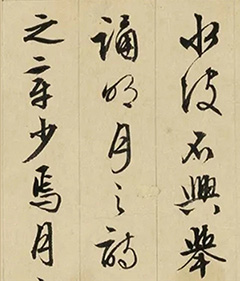 水波不興舉
誦明月之詩
之章少焉月